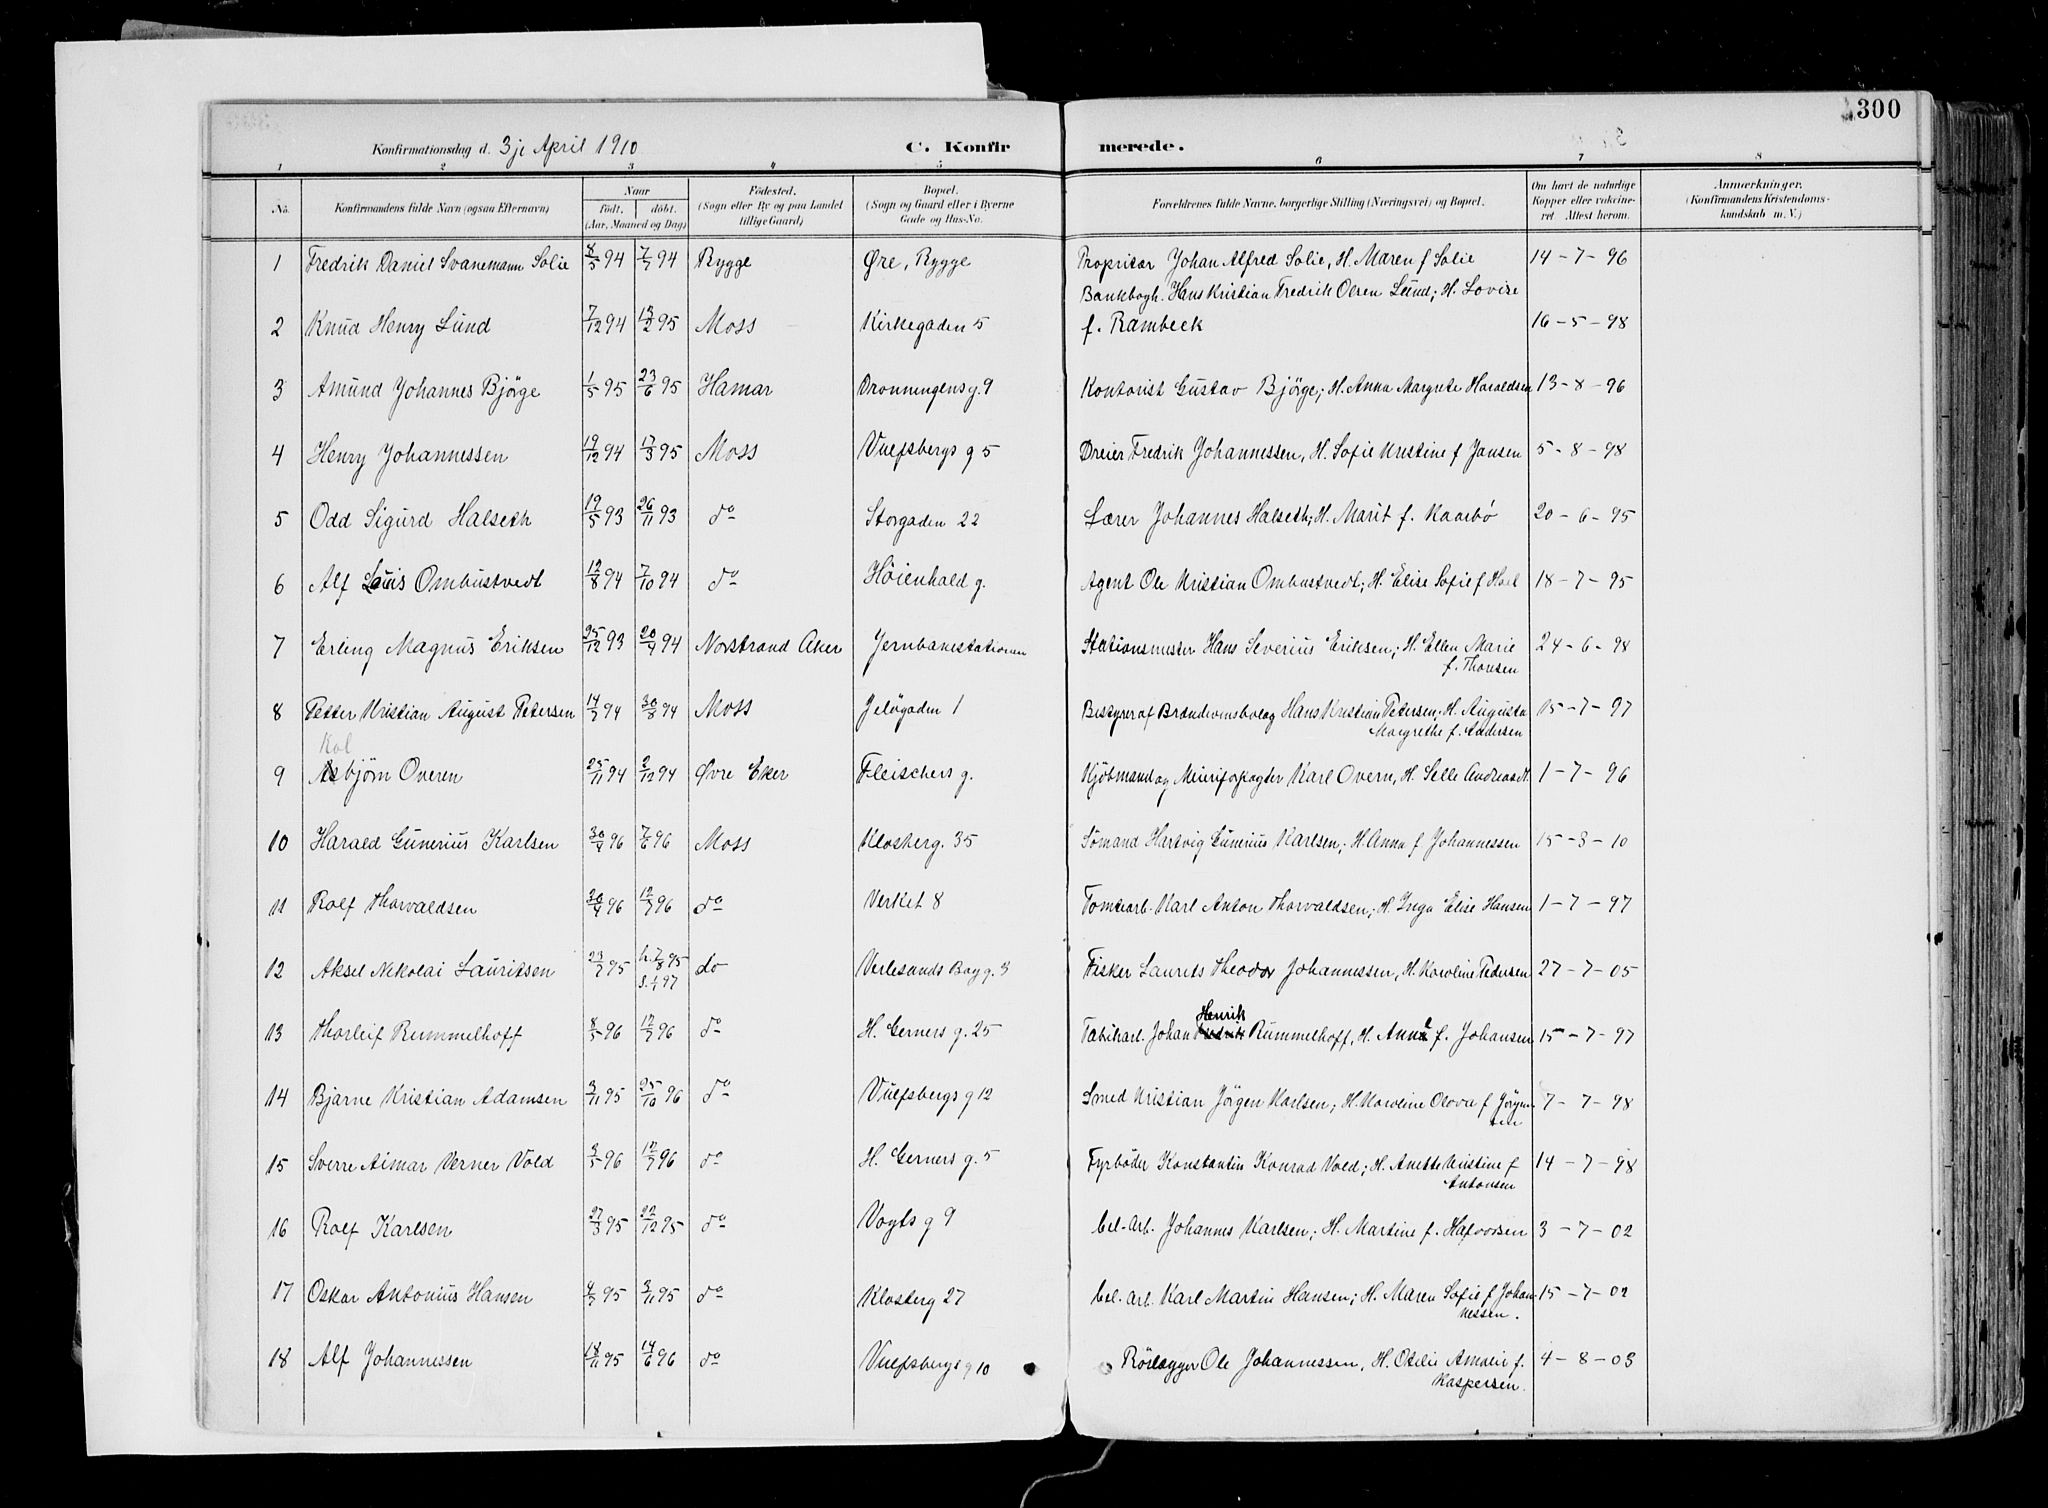 300
Konfirmationsdag d. 3je April 1910 C. Konfir merede.
1 2 3 4 5 6 7 8
No. Konfirmandens fulde Navn (ogsaa Efternavn) Naar født. døbt. (Aar, Maaned og Dag) Fødested. (Sogn eller By og paa Landet tillige Gaard) Bopæl. (Sogn og Gaard eller i Byerne Gade og Hus-No. Forældrenes fulde Navne, borgerlige Stilling (Næringsvei) og Bopæl. Om havt de naturlige Kopper eller vakcineret Attest herom. Anmærkninger. (Konfirmandens Kristendomskundskab m. V.)
1 Fredrik Daniel Svanemann Solie 8/5 94 7/7 94 Rygge Øre, Rygge Propritær Johan Alfred Solie, H. Maren f Solie 14-7-96
Bankbogh. Hans Kristian Fredrik Olsen Lund; H. Lovise
2 Knud Henry Lund 7/12 94 13/2 95 Moss Kirkegaden 5 f. Rambeck 16-5-98
3 Amund Johannes Bjørge 1/5 95 23/6 95 Hamar Dronningensg. 9 Kontorist Gustav Bjørge; H. Anna Margrete Haraldsen 13-8-96
4 Henry Johannessen 19/12 94 17/3 95 Moss Vulfsbergs g 5 Dreier Fredrik Johannessen, H. Sofie Kristine f Jansen 5-8-98
5 Odd Sigurd Halseth 19/5 93 26/11 93 do Storgaden 22 Lærer Johannes Halseth; H. Marit f. Kaarbø 20-6-95
6 Alf Louis Ombustvedt 12/8 94 7/10 94 do Høienhald g. Agent Ole Kristian Ombustvedt; H. Elise Sofie f Hoel 18-7-95
7 Erling Magnus Eriksen 25/12 93 20/4 94 Norstrand Aker Jernbanestationen Stationsmester Hans Severius Eriksen; H. Ellen Marie 24-6-98
f. Thonsen
8 Petter Kristian August Petersen 14/7 94 30/8 94 Moss Jeløgaden 1 Bestyrer af Brændevinsbolag Hans Kristian Petersen; H. Augusta 15-7-97
Margrethe f. Andersen
Kol
9 Asbjørn Overen 25/11 94 2/12 94 Øvre Eker Fleischers g. Kjøbmand og Meieriforpagter Karl Overn, H. Selle Andreas dt. 1-7-96
10 Harald Gunerius Karlsen 30/4 96 7/6 96 Moss Klosterg. 35 Sømand Hartvig Gunerius Karlsen; H. Anna f Johannessen 15-3-10
11 Rolf Thorvaldsen 30/4 96 12/7 96 do Verket 8 Tomtearb. Karl Anton Thorvaldsen; H. Inga Elise Hansen 1-7-97
12 Aksel Nikolai Lauritsen 23/7 95 h. 7/8 95 do Verlesands Bag g. 3 Fisker Laurits Theodor Johannessen, H. Karoline Pedersen 27-7-05
S. 1/1 97
Henrik
13 Thorleif Rummelhoff 8/5 96 12/7 96 do H. Gerners g. 25 Fabikarb. Johan Rummelhoff, H. Anna f. Johansen 15-7-97
14 Bjarne Kristian Adamsen 3/11 95 25/10 96 do Vulfsbergs g 12 Smed Kristian Jørgen Karlsen; H. Karoline Olava f Jørgen- 7-7-98
sen
15 Sverre Aimar Verner Vold 3/5 96 12/7 96 do H. Gerners g. 5 Fyrbøder Konstantin Konrad Vold; H. Anette Kristine f 14-7-98
Antonsen
16 Rolf Karlsen 27/3 95 22/12 95 do Vogts g 9 Cel-Arb. Johannes Karlsen; H. Martine f. Halvorsen 3-7-02
17 Oskar Antonius Hansen 4/7 95 3/11 95 do Klosterg 27 Cel. arb. Karl Martin Hansen; H. Maren Sofie f Johan- 15-7-02
nessen.
18 Alf Johannessen 18/11 95 14/6 96 do Vulfsbergs g 10 Rørlegger Ole Johannessen, H. Otelie Amalie f. 4-8-03
Kaspersen.